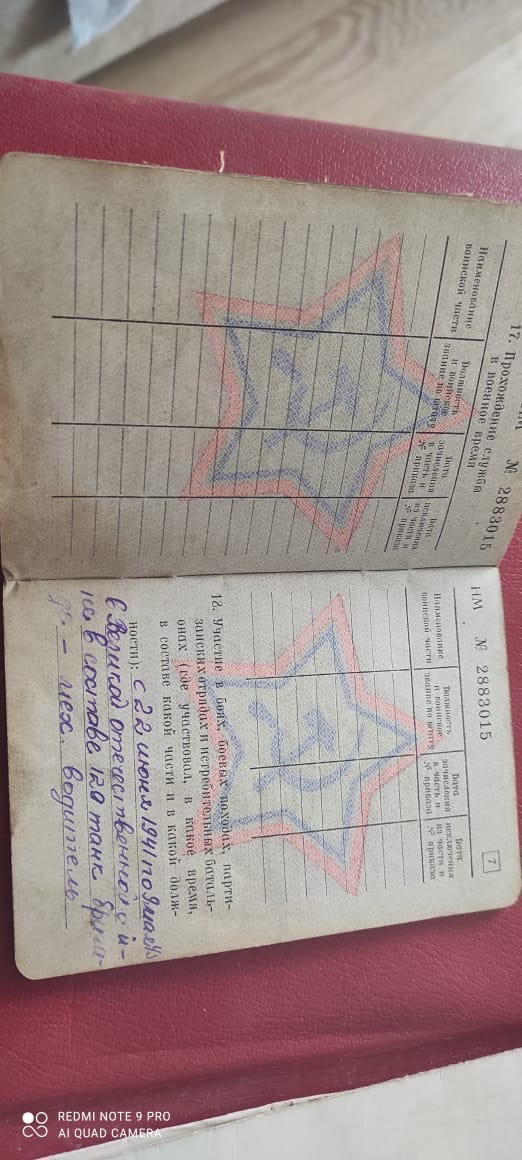 № 2883015
17. Прохождение службы
в военное время
Наименование
воинской части
Должность
и воинское
звание по штату
Дата
зачисления
в часть и
№ приказа
Дата
исключения
из части и
№ приказа
НМ № 2883015
7
Наименование
воинской части
Должность
и воинское
звание по штату
Дата
зачисления
в часть и
№ приказа
Дата
исключения
из части и
№ приказа
18. Участие в боях, боевых походах, парти-
занских отрядах и истребительных баталь-
онах (где участвовал, в какое время,
в составе какой части и в какой долж-
ности): с 22 июня 1941 по 9 мая 45
в Великой отечественной вой-
не в составе 120 танк брига-
ды. – мех. водитель
REDMI NOTE 9 PRO
AI QUAD CAMERA